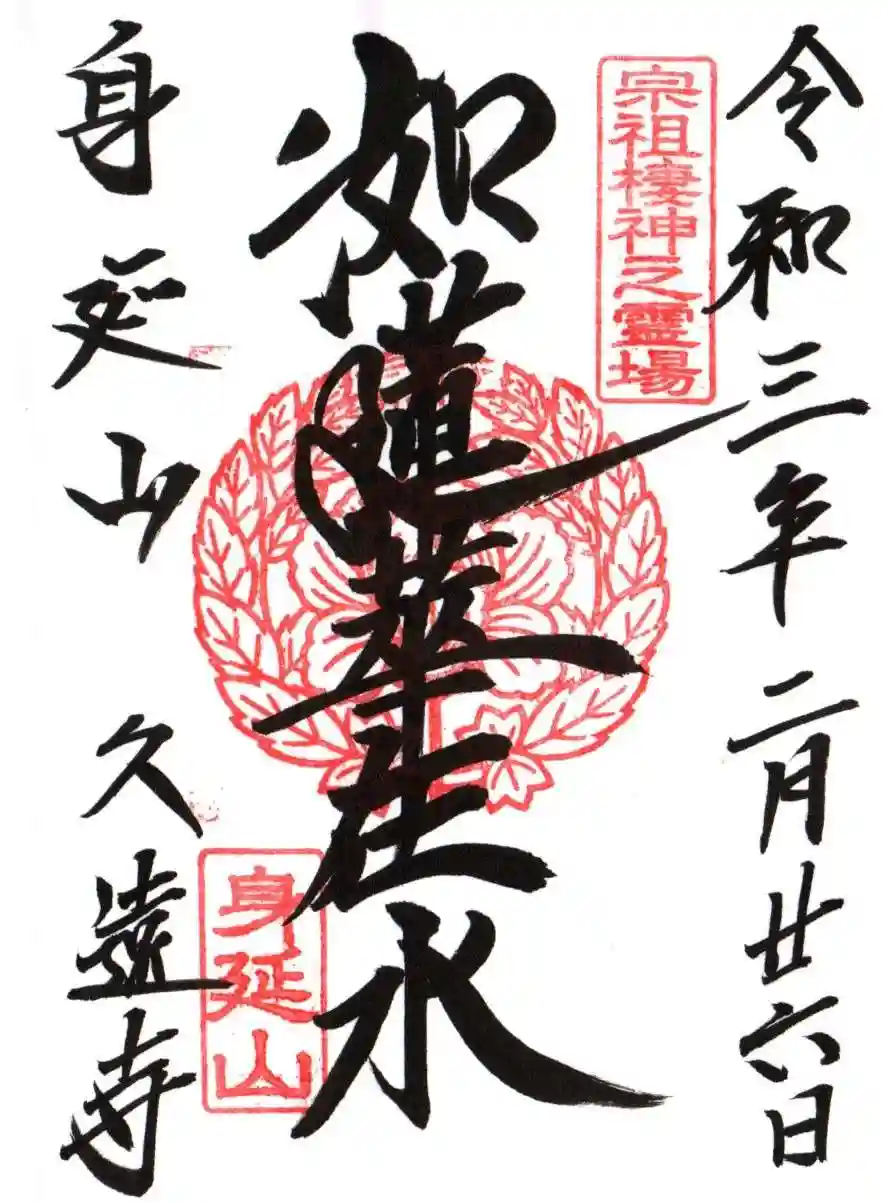 令和三年二月廿六日
宗祖棲神之霊場
如蓮華在水
身延山
身延山久遠寺